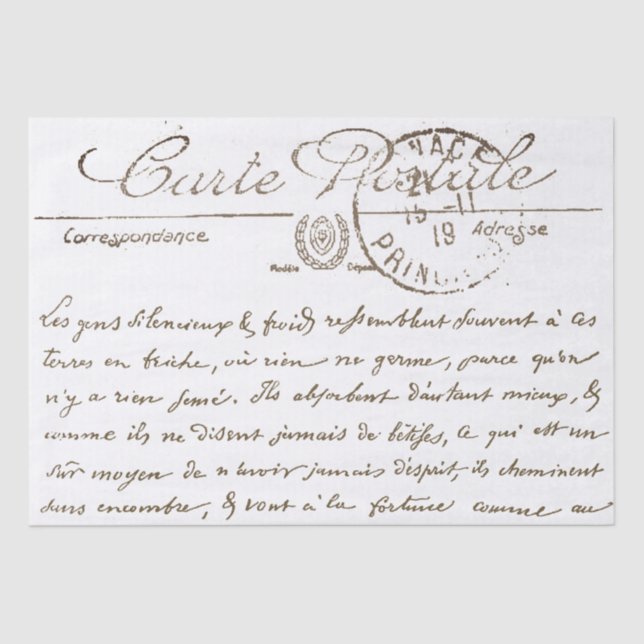 Carte Postale
NACE
15-11
19
PRINCI
Correspondance
Adresse
Modèle Déposé
Les gens silencieux & froids ressemblent souvent à ces
terres en friche, où rien ne germe, parce qu'on
n'y a rien semé. Ils absorbent d'autant mieux, &
comme ils ne disent jamais de bêtises, ce qui est un
sûr moyen de n'avoir jamais d'esprit, ils cheminent
sans encombre, & vont à la fortune comme au